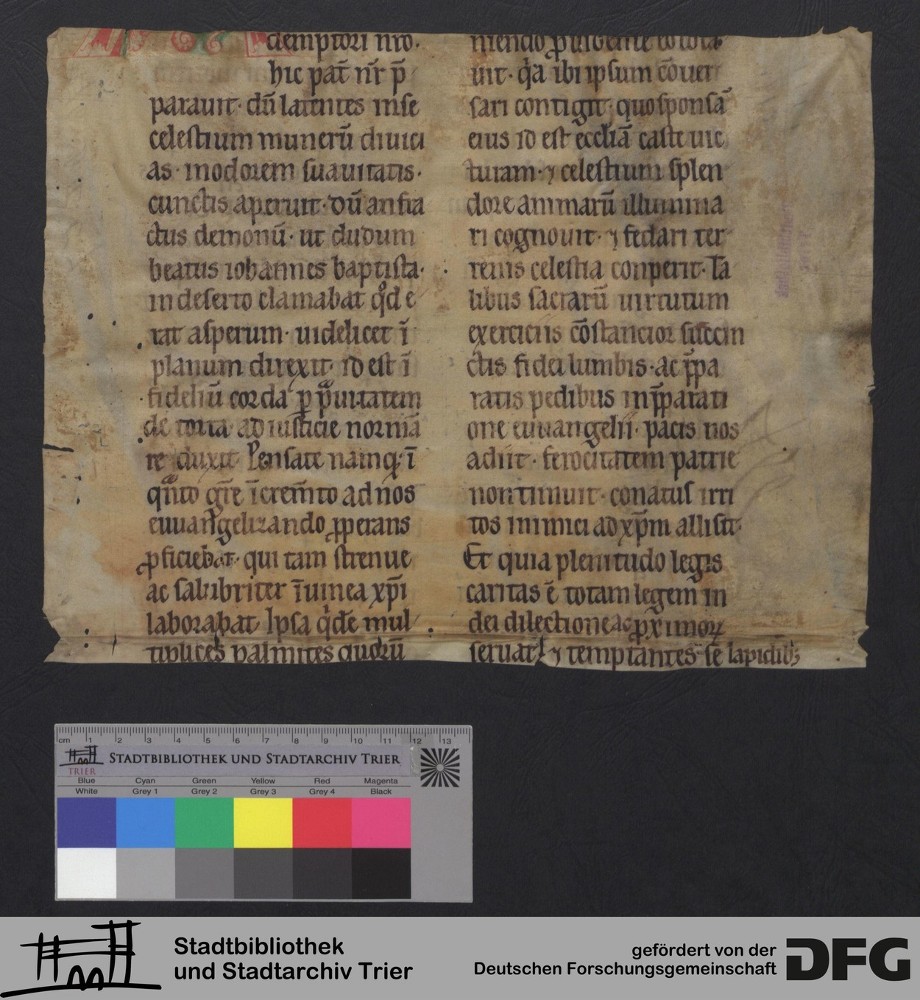 demptori nr̄o.
hic pat̄ nr̄ p̄
parauit· dū latentes in se
celestium munerū diuici
as· in odorem suauitatis·
cunctis aperuit· dū anfra
ctus demonū· ut dudum
beatus iohannes baptista·
in deserto clamabat qd̄ e
rat asperum· uidelicet ī
planum direxit· id est ī
fideliū corda p
de torta ad iusticie normā
re duxit· Pensate namq; ī
qͣnto gr̄e īcrem̄to ad nos
euuangelizando ꝓperans
ꝓficiebat· qui tam strenue
ac salubriter ī uinea xp̄i
laborabat· Ipsa qͥde mul
tiplices palmites quorū
uit· qͥa ibi ipsum cōuer
sari contigit· quo sponsā
eius id est eccl̄iā caste uic
turam· ⁊ celestium splen
dore animarū illumina
ri cognouit· ⁊ fedari ter
renis celestia conperit· Ta
libus sacrarū uirtutum
exerciciis cōstancior succin
ctis fidei lumbis· ac p̄pa
ratis pedibus in p̄parati
one euuangelii· pacis nos
adiit· ferocitatem patrie
non timuit· conatus irri
tos inimici ad xp̄m allisit·
Et quia plenitudo legis
caritas ē totam legem in
dei dilectione ac ꝓximoꝝ
seruat· ⁊ temptantes se lapidib;
cm 1 2 3 4 5 6 7 8 9 10 11 12 13
TRIER
STADTBIBLIOTHEK UND STADTARCHIV TRIER
Blue Cyan Green Yellow Red Magenta
White Grey 1 Grey 2 Grey 3 Grey 4 Black
Stadtbibliothek
und Stadtarchiv Trier
gefördert von der
Deutschen Forschungsgemeinschaft
DFG